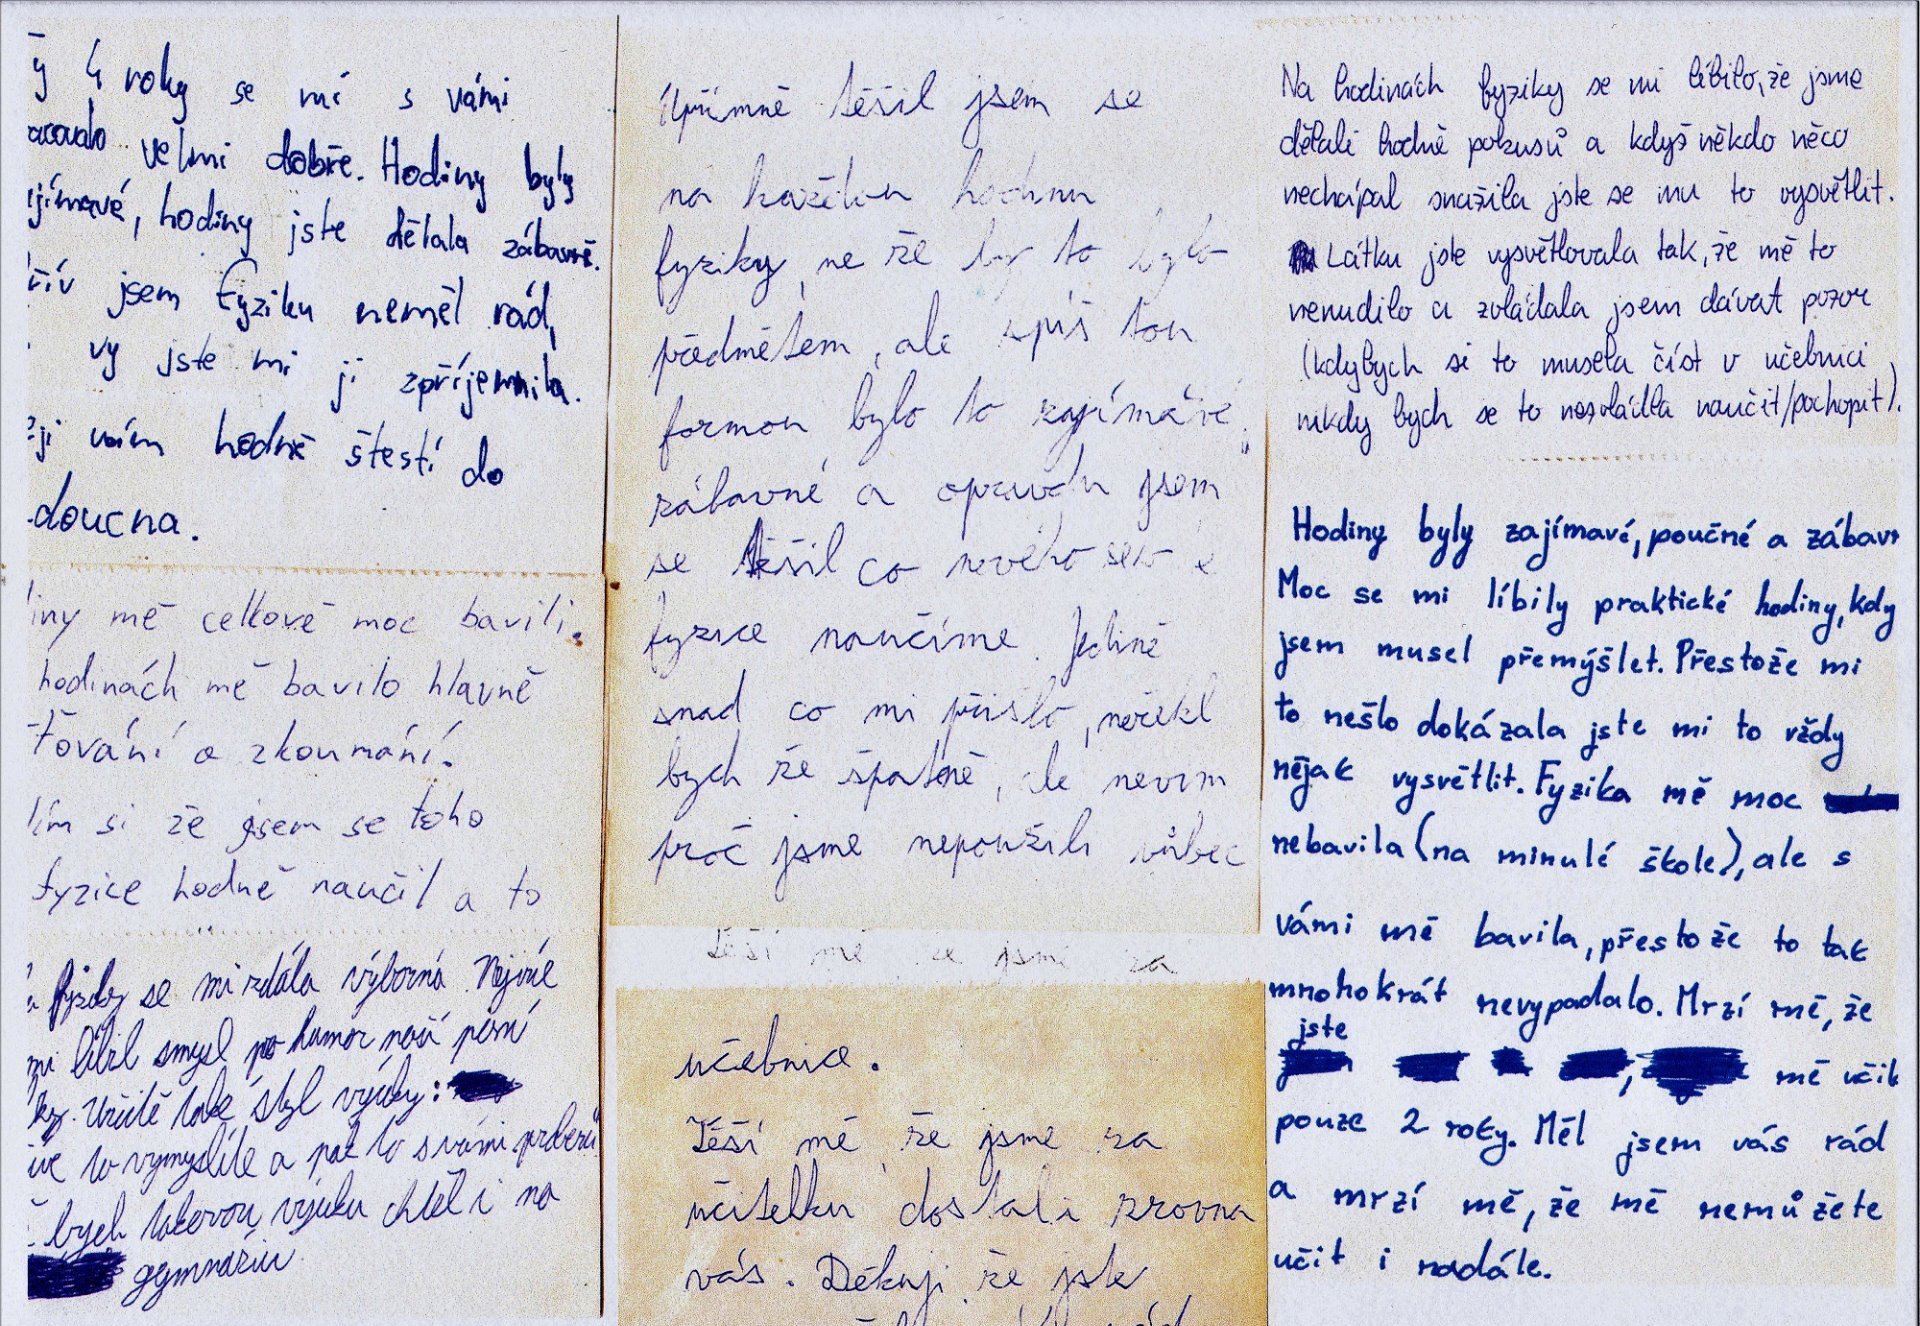 y 4 roky se mi s vámi
acovalo velmi dobře. Hodiny byly
jímavé, hodiny jste dělala zábavně.
řív jsem fyziku neměl rád,
vy jste mi ji zpříjemnila.
ji vám hodně štestí do
doucna.
iny mě celkově moc bavili.
hodinách mě bavilo hlavně
ťování a zkoumání.
ím si že jsem se toho
fyzice hodně naučil a to
se mi zdála výborná. Nejvíc
mi líbil smysl po humor naší paní
ky. Určitě také styl výuky:
íve to vymyslíte a pak to s vámi proberu
bych takovou výuku chtěl i na
gymnáziu
Upřímně těšil jsem se
na každou hodinu
fyziky, ne že by to bylo
předmětem, ale spíš tou
formou bylo to zajímavé,
zábavné a opravdu jsem
se těšil co nového se v
fyzice naučíme. Jedině
snad co mi přišlo, neřekl
bych že špatně, ale nevim
proč jsme nepoužili vůbec
Těší mě že jsme za
učebnice.
Těší mě že jsme za
učitelku dostali zrovna
vás. Děkuji že jste
Na hodinách fyziky se mi líbilo, že jsme
dělali hodně pokusů a kdyš někdo něco
nechápal snažila jste se mu to vysvětlit.
Látku jste vysvětlovala tak, že mě to
nenudilo a zvládala jsem dávat pozor
(kdybych si to musela číst v učebnici
nikdy bych se to nezvládla naučit/pochopit).
Hodiny byly zajímavé, poučné a zábavn
Moc se mi líbily praktické hodiny, kdy
jsem musel přemýšlet. Přestože mi
to nešlo dokázala jste mi to vždy
nějak vysvětlit. Fyzika mě moc
nebavila (na minulé škole), ale s
vámi mě bavila, přestože to tak
mnohokrát nevypadalo. Mrzí mě, že
jste
, mě učili
pouze 2 roky. Měl jsem vás rád
a mrzí mě, že mě nemůžete
učit i nadále.